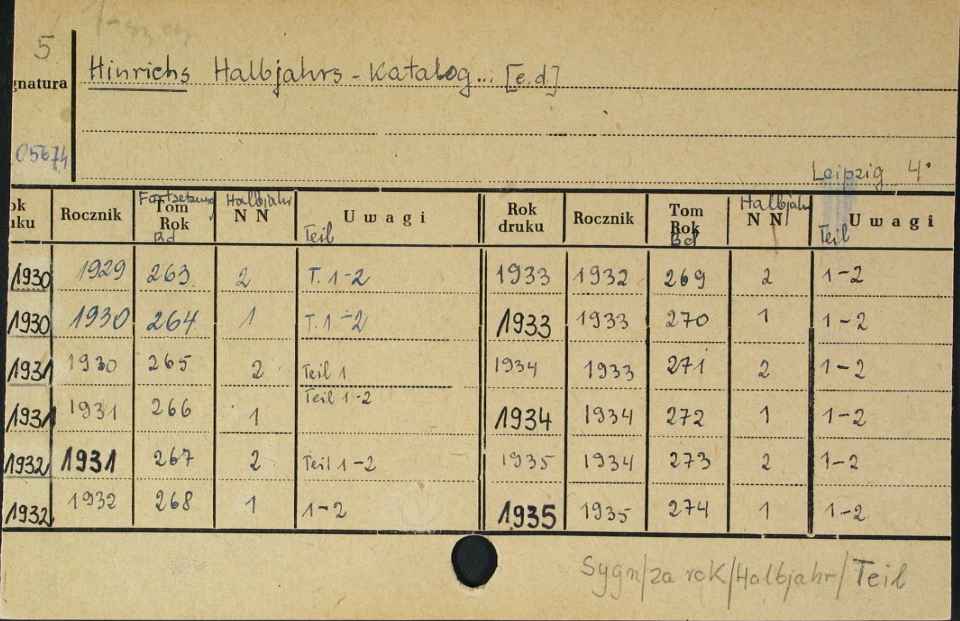 5
Hinrichs Halbjahrs-Katalog... [e.d.]
gnatura
05674
Leipzig 4°
ok uku Rocznik Fortsetzung Tom Rok Bd Halbjahr NN Uwagi Teil Rok druku Rocznik Tom Rok Bd Halbjahr NN Uwagi Teil
1930 1929 263 2 T. 1-2 1933 1932 269 2 1-2
1930 1930 264 1 T. 1-2 1933 1933 270 1 1-2
1931 1930 265 2 Teil 1 1934 1933 271 2 1-2
1931 1931 266 1 Teil 1-2 1934 1934 272 1 1-2
1932 1931 267 2 Teil 1-2 1935 1934 273 2 1-2
1932 1932 268 1 1-2 1935 1935 274 1 1-2
Sygn/za rok/Halbjahr/Teil